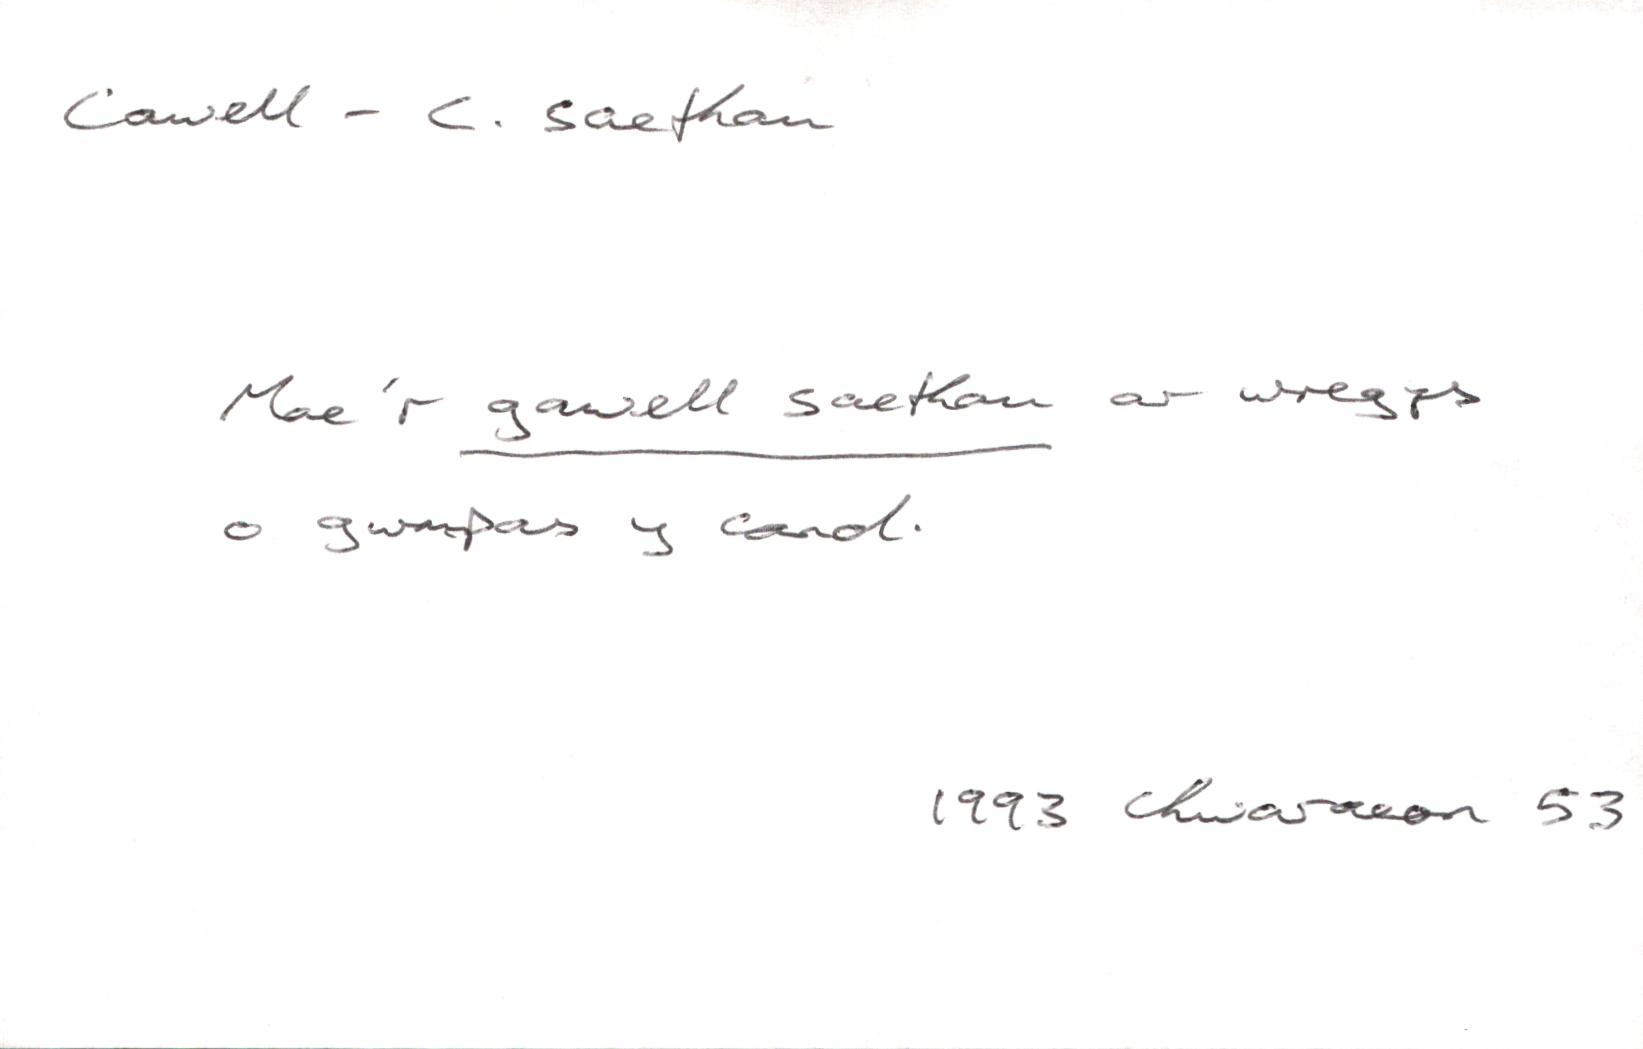 Cawell - C. saethau
Mae'r gawell saethau ar wregys
o gwmpas y canol.
1993 Chwaraeon 53